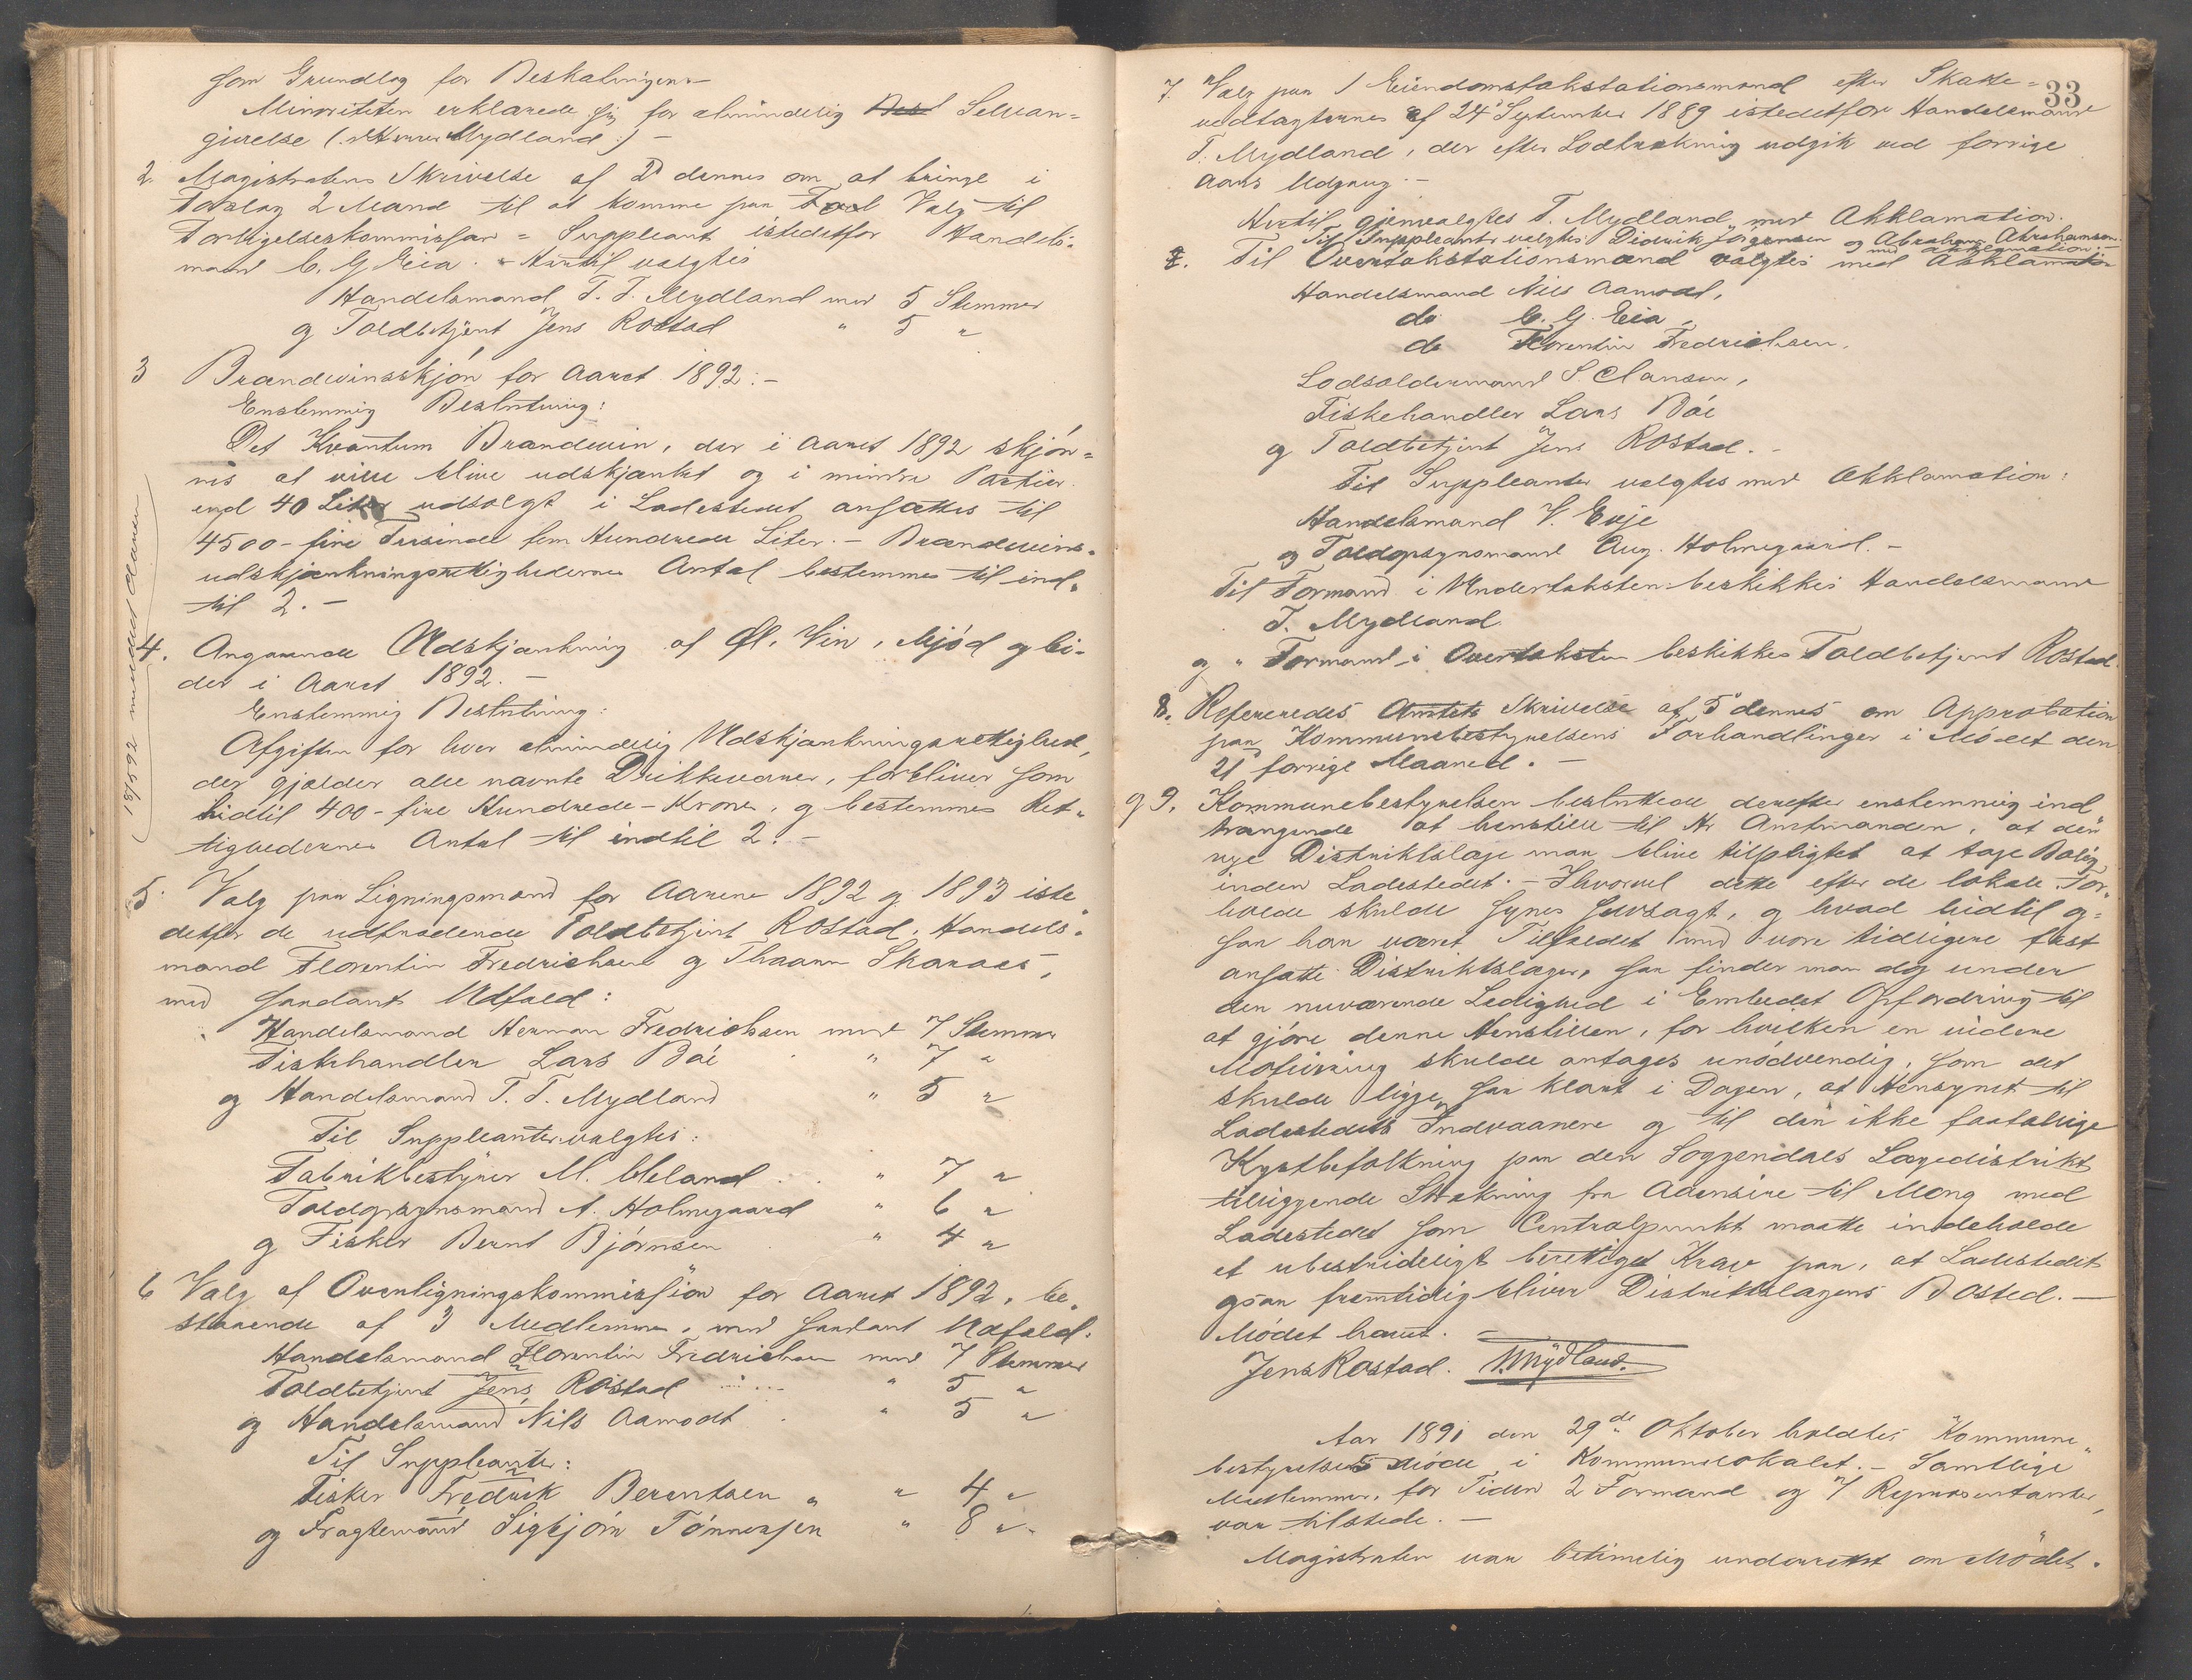 som Grundlag for Beskatningen.—
Minoriteten erklærede sig for almindelig Selvan=
givelse (: Herrer Mydland :) —
2. Magistratens Skrivelse af 2d dennes om at bringe i
Forslag 2 Mænd til at komme paa Valg til
Forligelseskommissær = Suppleant istedetfor Handels-
mand C. G. Eia. — Hertil valgtes
Handelsmand T. T. Mydland med 5 Stemmer
og Toldbetjent Jens Rostad " 5 "
3 Brændevinsskjøn for Aaret 1892:—
Enstemmig Beslutning:
Det Kvantum Brændevin, der i Aaret 1892 skjøn=
nes at ville blive udskjænket og i mindre Partier
end 40 Liter udsolgt i Ladestedet ansættes til
4500 - fire Tusinde fem Hundrede Liter. — Brændevins-
udskjænkningsrettighedernes Antal bestemmes til ind-
til 2. —
4. Angaaende Udskjænkning af Øl, Vin, Mjød og Ci-
der i Aaret 1892. —
Enstemmig Beslutning:
Afgiften for hver almindelig Udskjænkningsrettighed,
der gjælder alle nævnte Drikkevarer, forbliver som
hidtil 400 - fire Hundrede - Kroner, og bestemmes Ret-
tighedernes Antal til indtil 2. —
5. Valg paa Ligningsmænd for Aarene 1892 og 1893 iste-
detfor de udtrædende Toldbetjent Rostad, Handels-
mand Florentin Fredrichsen og Skaraas,
med saadant Udfald:
Handelsmand Herman Fredrichsen med 7 Stemmer
Fiskehandler Lars Bøe " 7 "
og Handelsmand T. T. Mydland " 5 "
Til Suppleanter valgtes:
Fabrikbestyrer M. Meland " 7 "
Toldopsynsmand A. Holmegaard " 6 "
og Fisker Bernt Bjørnsen " 4 "
6 Valg af Overligningskommission for Aaret 1892, be-
staaende af 3 Medlemmer, med saadant Udfald:
Handelsmand Florentin Fredrichsen med 7 Stemmer
Toldbetjent Jens Rostad " 5 "
og Handelsmand Nils Aamodt " 5 "
Til Suppleanter:
Fisker Fredrik Berentsen " " 4 "
og Fragtemand Sigbjørn Tønnessen " 8 "
33
7. Valg paa 1 Eiendomstakstationsmand efter Skatte=
vedtægternes af 24 September 1889 istedetfor Handelsmand
T. Mydland, der efter Lodtrækning udgik ved forrige
Aars Udgang.—
Hertil gjenvalgtes T. Mydland med Akklamation.
Til Suppleanter valgtes Diedrik Jørgensen og Abraham Abrahamsen
med Akklamation.—
Til Overtakstationsmænd valgtes med Akklamation
Handelsmand Nils Aamodt,
do C. G. Eia,
do Florentin Fredrichsen,
Lodsoldermand S. Clausen,
Fiskehandler Lars Bøe
og Toldbetjent Jens Rostad.
Til Suppleanter valgtes med Akklamation:
Handelsmand V. Evje
og Toldopsynsmand Aug. Holmegaard. —
Til Formand i Undertaksten beskikkes Handelsmand
T. Mydland.
og " Formand i Overtaksten beskikkes Toldbetjent Rostad.
8. Refereredes Amtets Skrivelse af 5 dennes om Approbation
paa Kommunebestyrelsens Forhandlinger i Mødet den
21 forrige Maaned. —
og 9. Kommunebestyrelsen besluttede derefter enstemmig ind-
trængende at henstille til Hr Amtmanden, at den
nye Distriktslæge maa blive tilpligtet at tage Bolig
inden Ladestedet. — Ihvorvel dette efter de lokale For-
holde skulde synes selvsagt, og hvad hidtil og=
saa har været Tilfældet med vore tidligere fast
ansatte Distriktslæger, saa finder man dog under
den nuværende Ledighed i Embedet Opfordring til
at gjøre denne Henstillen, for hvilken en videre
Motivering skulde antages unødvendig, som det
skulde ligge saa klart i Dagen, at Hensynet til
Ladestedets Indvaanere og til den ikke faatallige
Kystbefolkning paa den Soggendals Lægedistrikt
tilliggende Strækning fra Aaensire til Mong med
Ladestedet som Centralpunkt maatte indeholde
et ubestrideligt berettiget Krav paa, at Ladestedet
ogsaa fremtidig bliver Distriktslægens Bosted. —
Mødet hævet. —
Jens Rostad. Mydland.
Aar 1891 den 29de Oktober holdtes Kommune-
bestyrelsesmøde i Kommunelokalet. — Samtlige
Medlemmer, for Tiden 2 Formænd og 7 Repræsentanter,
var tilstede. —
Magistraten var betimelig underrettet om Mødet.